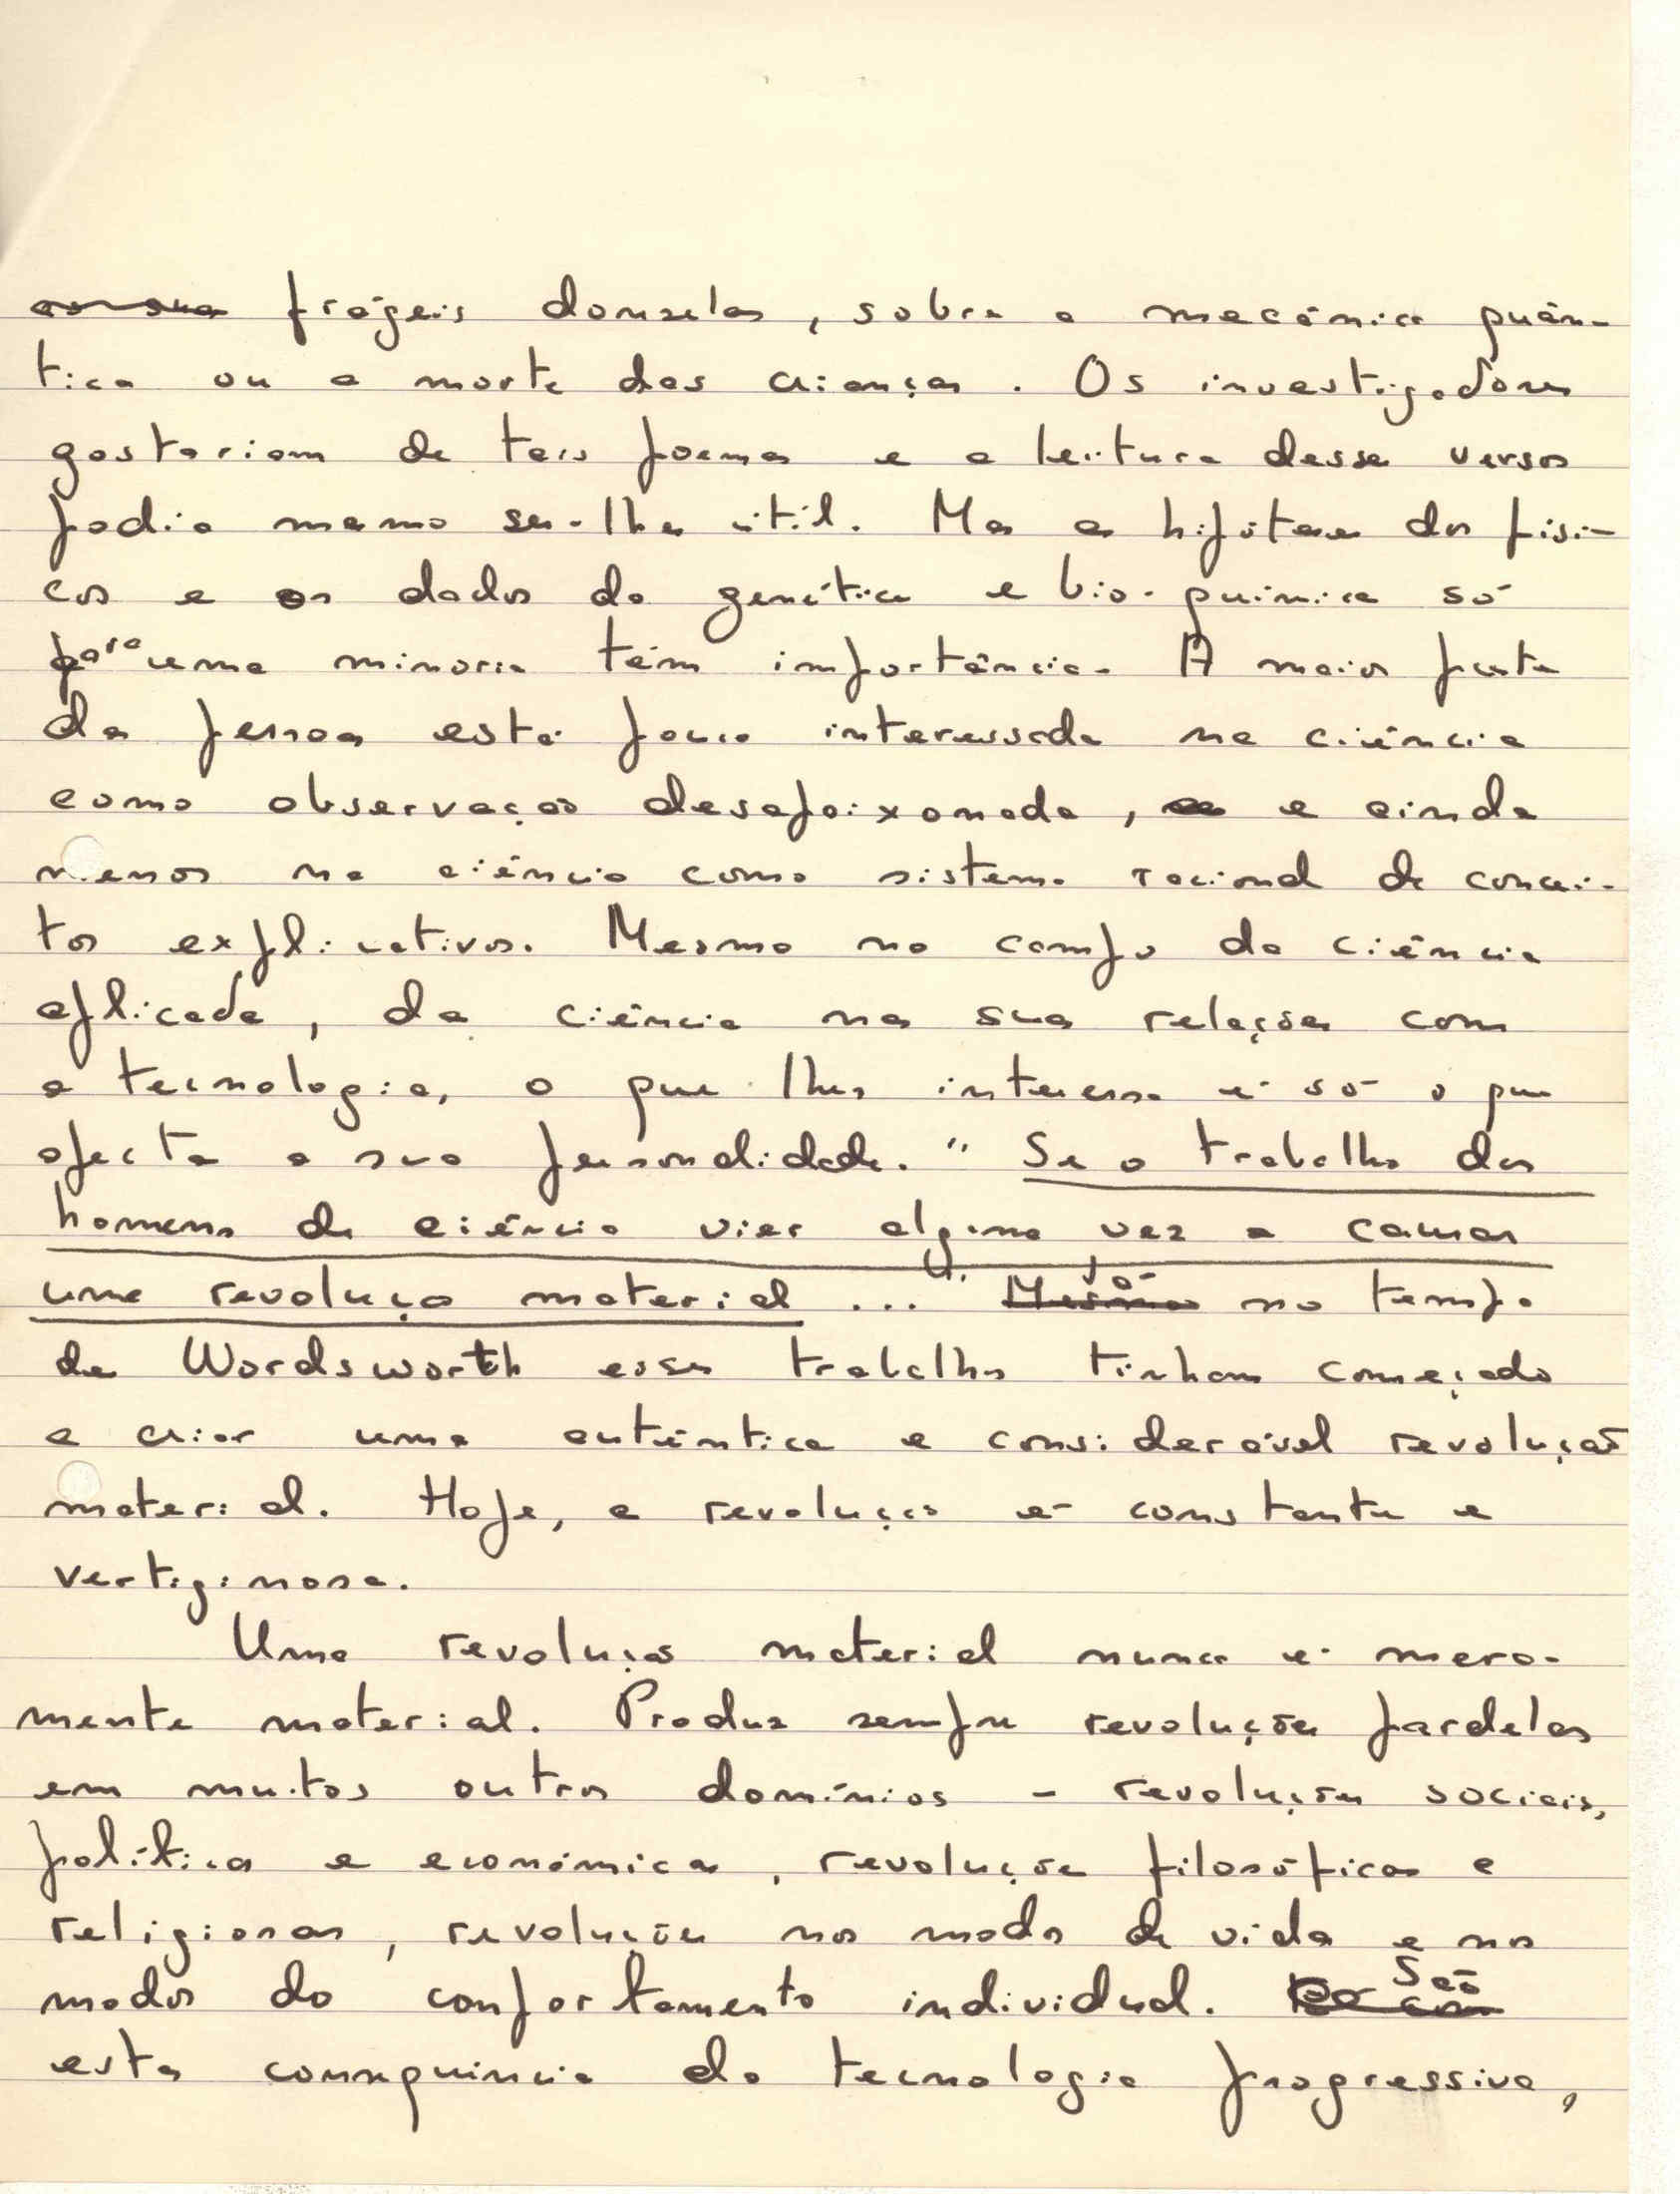 frágeis donzelas, sobre a mecânica quân-
tica ou a morte das crianças. Os investigadores
gostariam de tais poemas e a leitura desses versos
podia mesmo ser-lhes útil. Mas as hipóteses dos físi-
cos e os dados da genética e bio-química só
para uma minoria têm importância. A maior parte
das pessoas está pouco interessada na ciência
como observação desapaixonada, e ainda
menos na ciência como sistema racional de concei-
tos explicativos. Mesmo no campo da ciência
aplicada, da ciência nas suas relações com
a tecnologia, o que lhes interessa é só o que
afecta a sua personalidade. "Se o trabalho dos
homens de ciência vier alguma vez a causar
uma revolução material ... Já no tempo
de Wordsworth esses trabalhos tinham começado
a criar uma autêntica e considerável revolução
material. Hoje, a revolução é constante e
vertiginosa.
Uma revolução material nunca é mera-
mente material. Produz sempre revoluções paralelas
em muitos outros domínios - revoluções sociais,
políticas e económicas, revoluções filosóficas e
religiosas, revoluções nos modos de vida e nos
modos do comportamento individual. São
estas consequências da tecnologia progressiva,